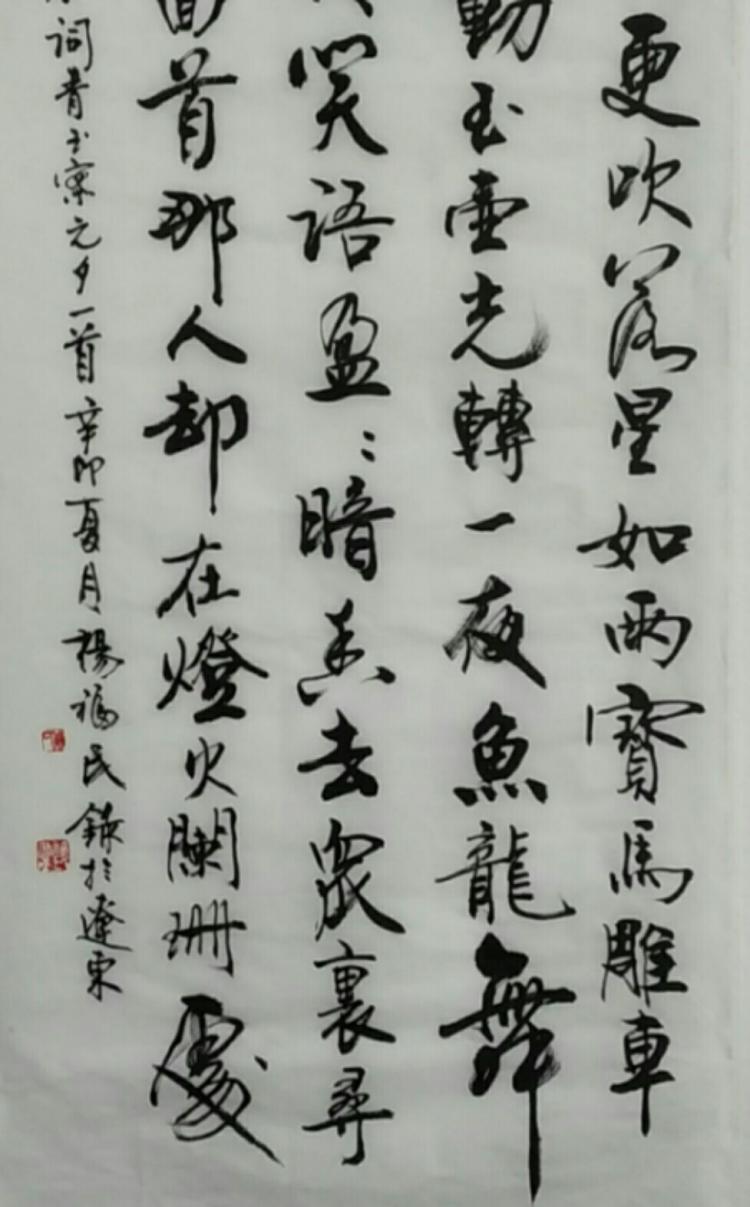 更吹落星如雨寶馬雕車
動玉壺光轉一夜魚龍舞
笑語盈〻暗香去衆裏尋
回首那人却在燈火闌珊處
詞青玉案元夕一首辛卯夏月楊福民錄於遼東